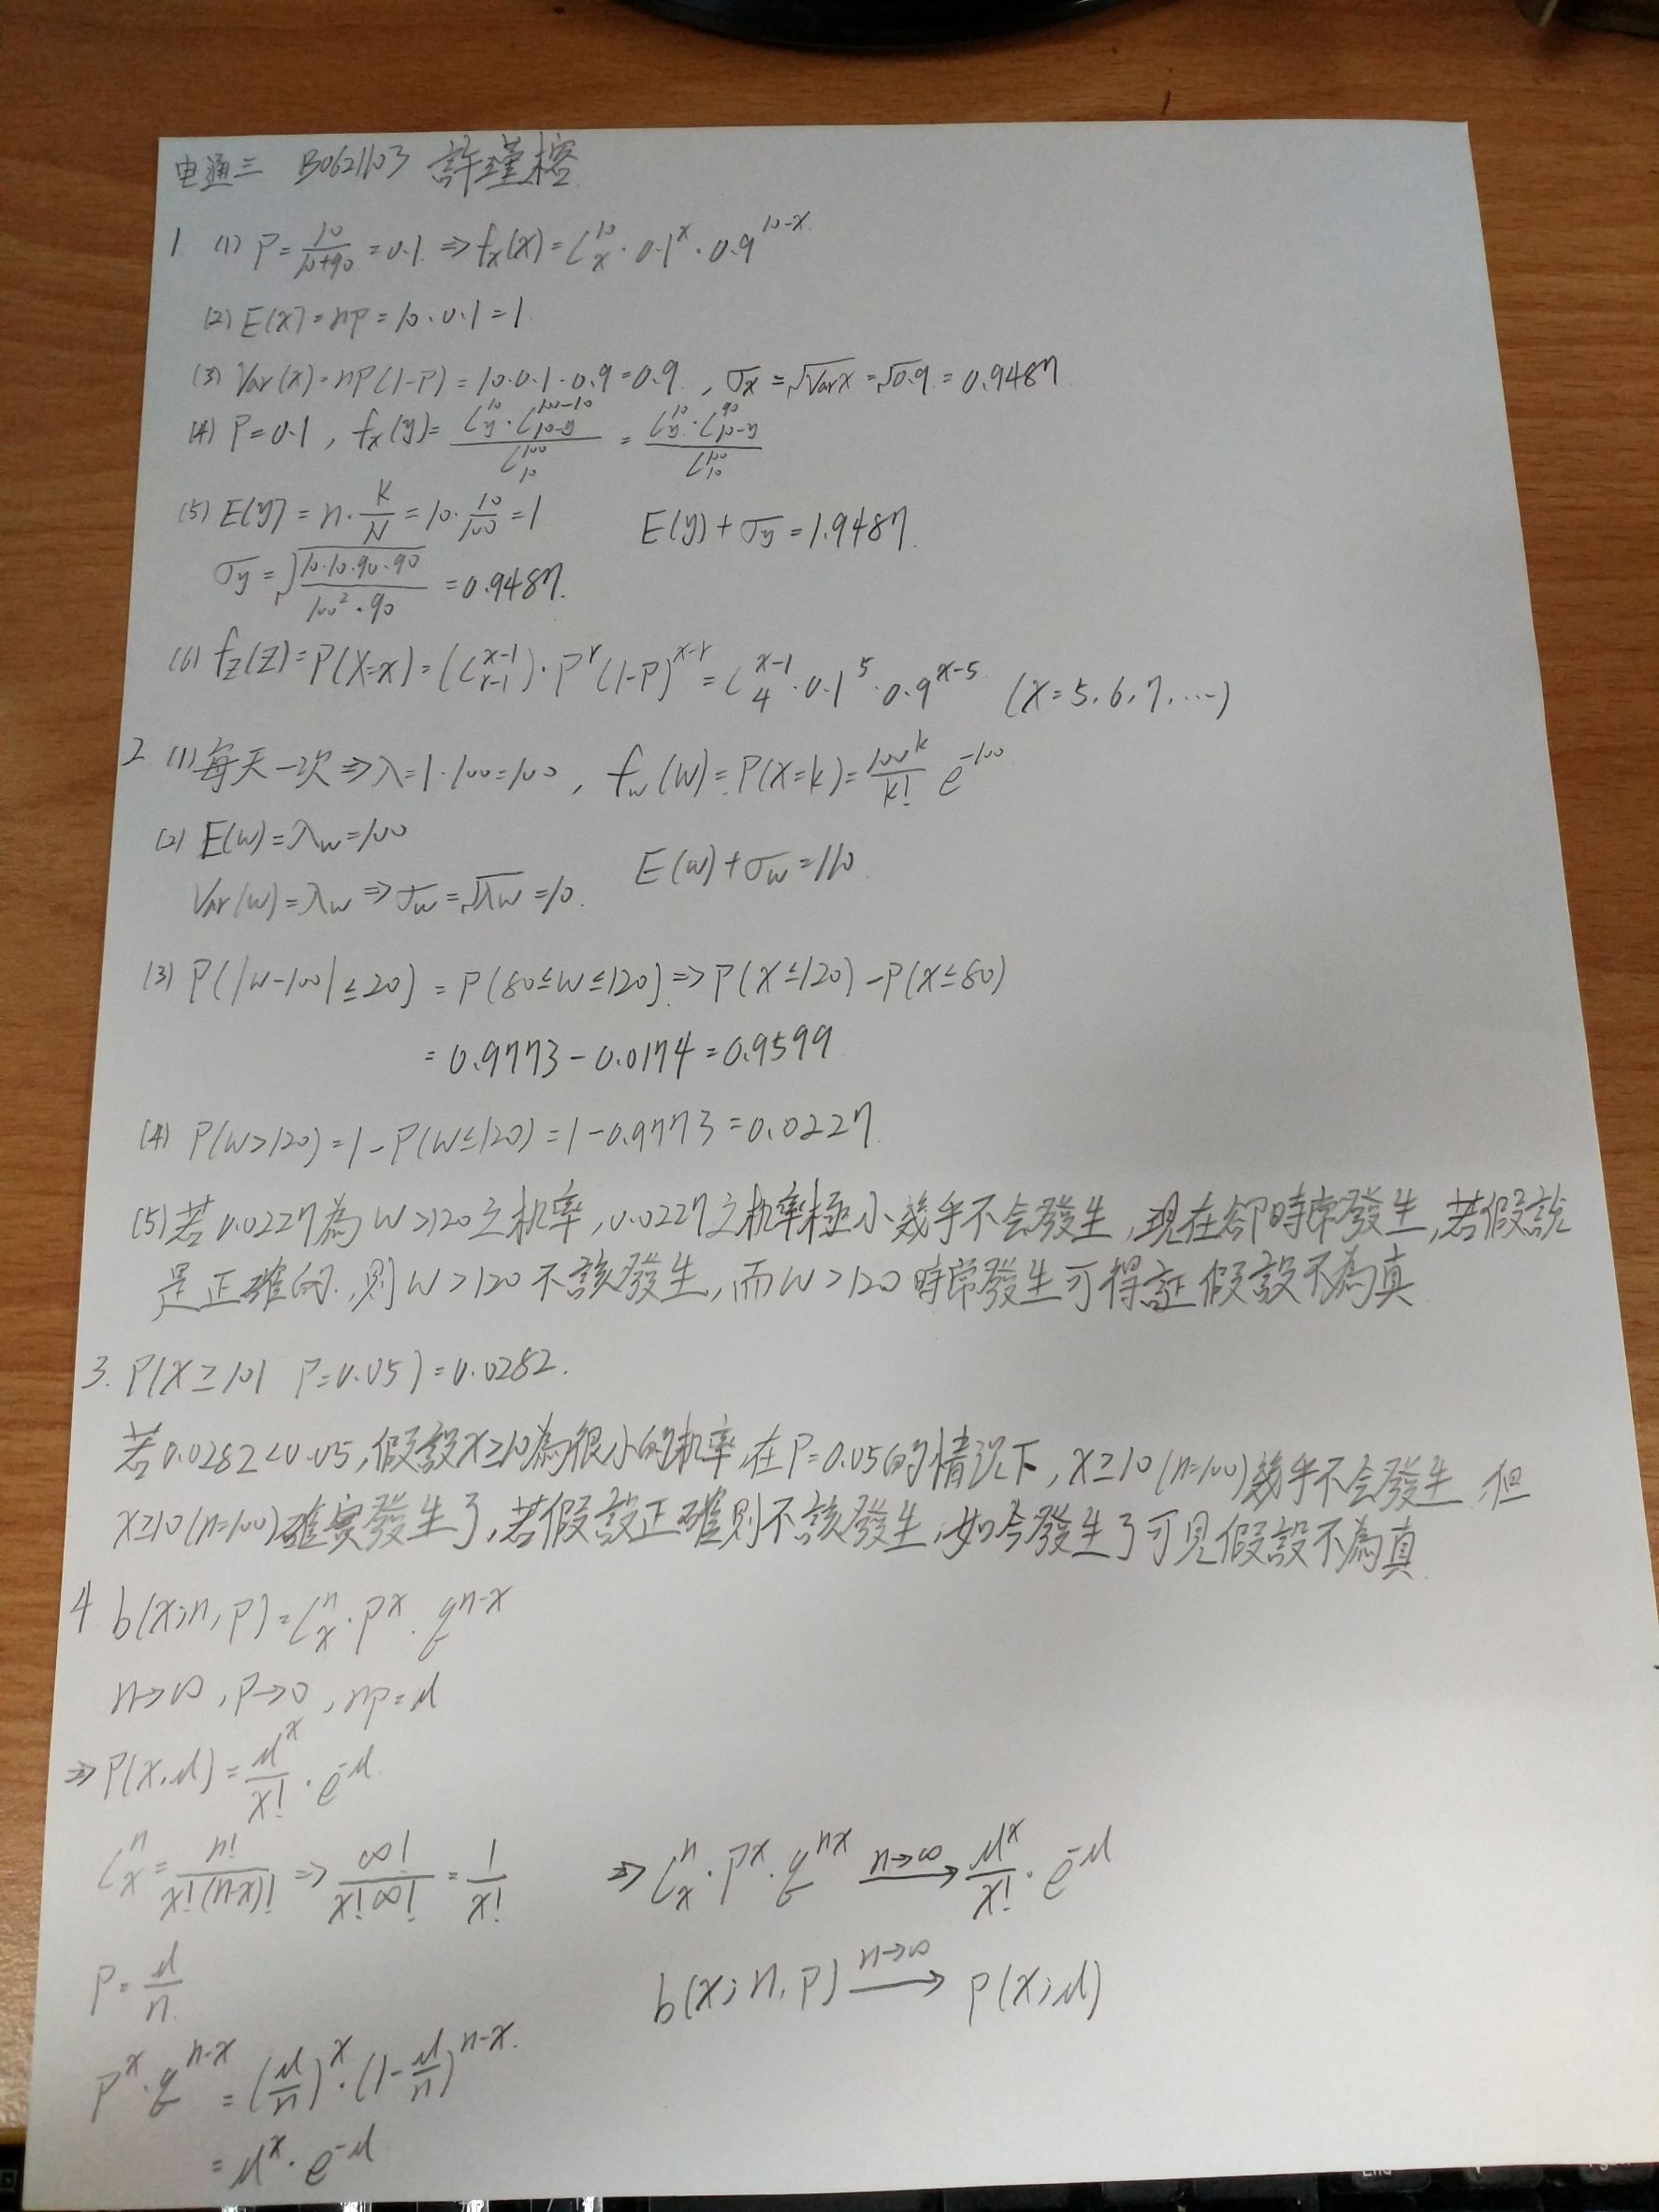 电通三 B0621103 許瑾榕
1. (1) P=10/(10+90)=0.1 ⇒ fx(x)=C^10_x·0.1^x·0.9^(10-x)
(2) E(x)=np=10·0.1=1
(3) Var(x)=np(1-p)=10·0.1·0.9=0.9, σx=√Varx=√0.9=0.9487
(4) P=0.1, fx(y)=(C^10_y·C^(100-10)_(10-y))/C^100_10=(C^10_y·C^90_(10-y))/C^100_10
(5) E(y)=n·K/N=10·10/100=1 E(y)+σy=1.9487
σy=√((10·10·90·90)/(100²·90))=0.9487.
(6) fz(z)=P(X=x)=(C^(x-1)_(r-1))·P^r(1-P)^(x-r)=C^(x-1)_4·0.1^5·0.9^(x-5) (x=5,6,7,...)
2. (1) 每天一次⇒λ=1·100=100, fw(w)=P(X=k)=100^k/k! e^-100
(2) E(w)=λw=100 E(w)+σw=110
Var(w)=λw⇒σw=√λw=10.
(3) P(|w-100|≤20)=P(80≤w≤120)⇒P(x≤120)-P(x≤80)
=0.9773-0.0174=0.9599
(4) P(w>120)=1-P(w≤120)=1-0.9773=0.0227
(5) 若0.0227為w>120之机率,0.0227之机率極小幾乎不会發生,現在卻時常發生,若假說
是正確的,則w>120不該發生,而w>120時常發生可得証假設不為真
3. P(X≥10| P=0.05)=0.0282.
若0.0282<0.05,假設x≥10為很小的机率,在P=0.05的情况下,x≥10(n=100)幾乎不会發生,但
x≥10(n=100)確實發生了,若假設正確則不該發生,如今發生了可見假設不為真
4 b(x;n,p)=C^n_x·p^x·q^(n-x)
n→∞,p→0,np=μ
⇒P(x,μ)=μ^x/x!·e^-μ
C^n_x=n!/(x!(n-x)!)⇒∞!/(x!∞!)=1/x! ⇒C^n_x·p^x·q^nx n→∞→ μ^x/x!·e^-μ
P=μ/n b(x;n,p) n→∞→ p(x;μ)
p^x·q^(n-x)=(μ/n)^x·(1-μ/n)^(n-x)
=μ^x·e^-μ